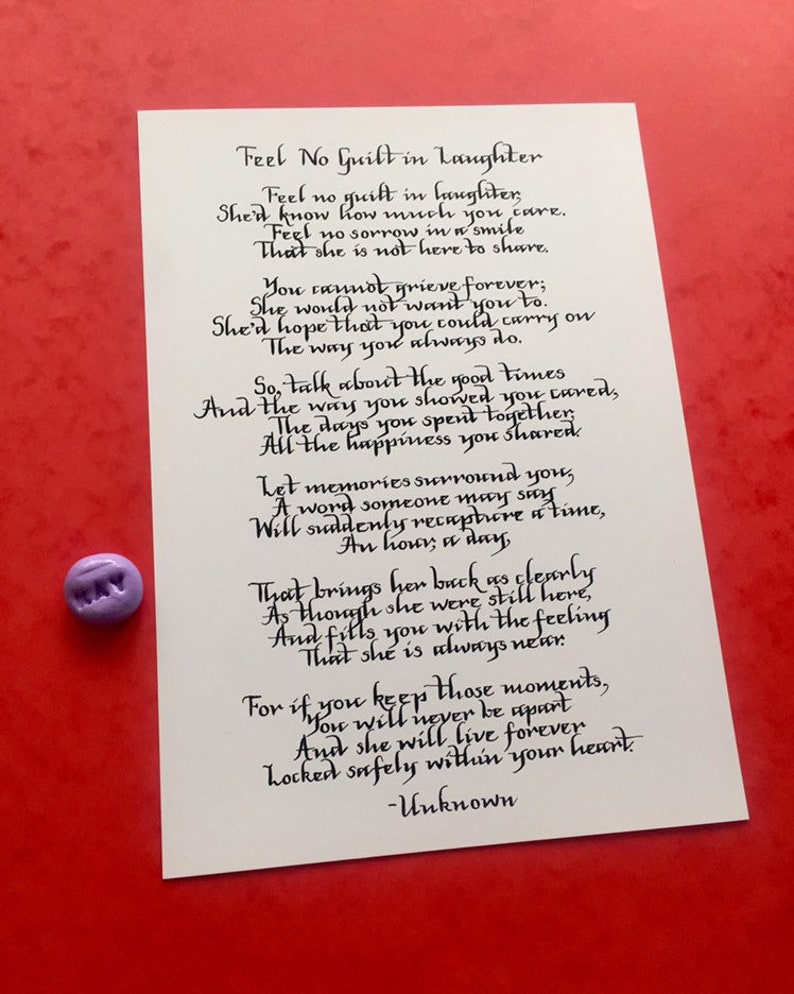 Feel No Guilt in Laughter
Feel no guilt in laughter,
She'd know how much you care.
Feel no sorrow in a smile
That she is not here to share.
You cannot grieve forever;
She would not want you to.
She'd hope that you could carry on
The way you always do.
So, talk about the good times
And the way you showed you cared,
The days you spent together,
All the happiness you shared.
Let memories surround you,
A word someone may say
Will suddenly recapture a time,
An hour, a day,
That brings her back as clearly
As though she were still here,
And fills you with the feeling
That she is always near.
For if you keep those moments,
You will never be apart
And she will live forever
Locked safely within your heart.
-Unknown